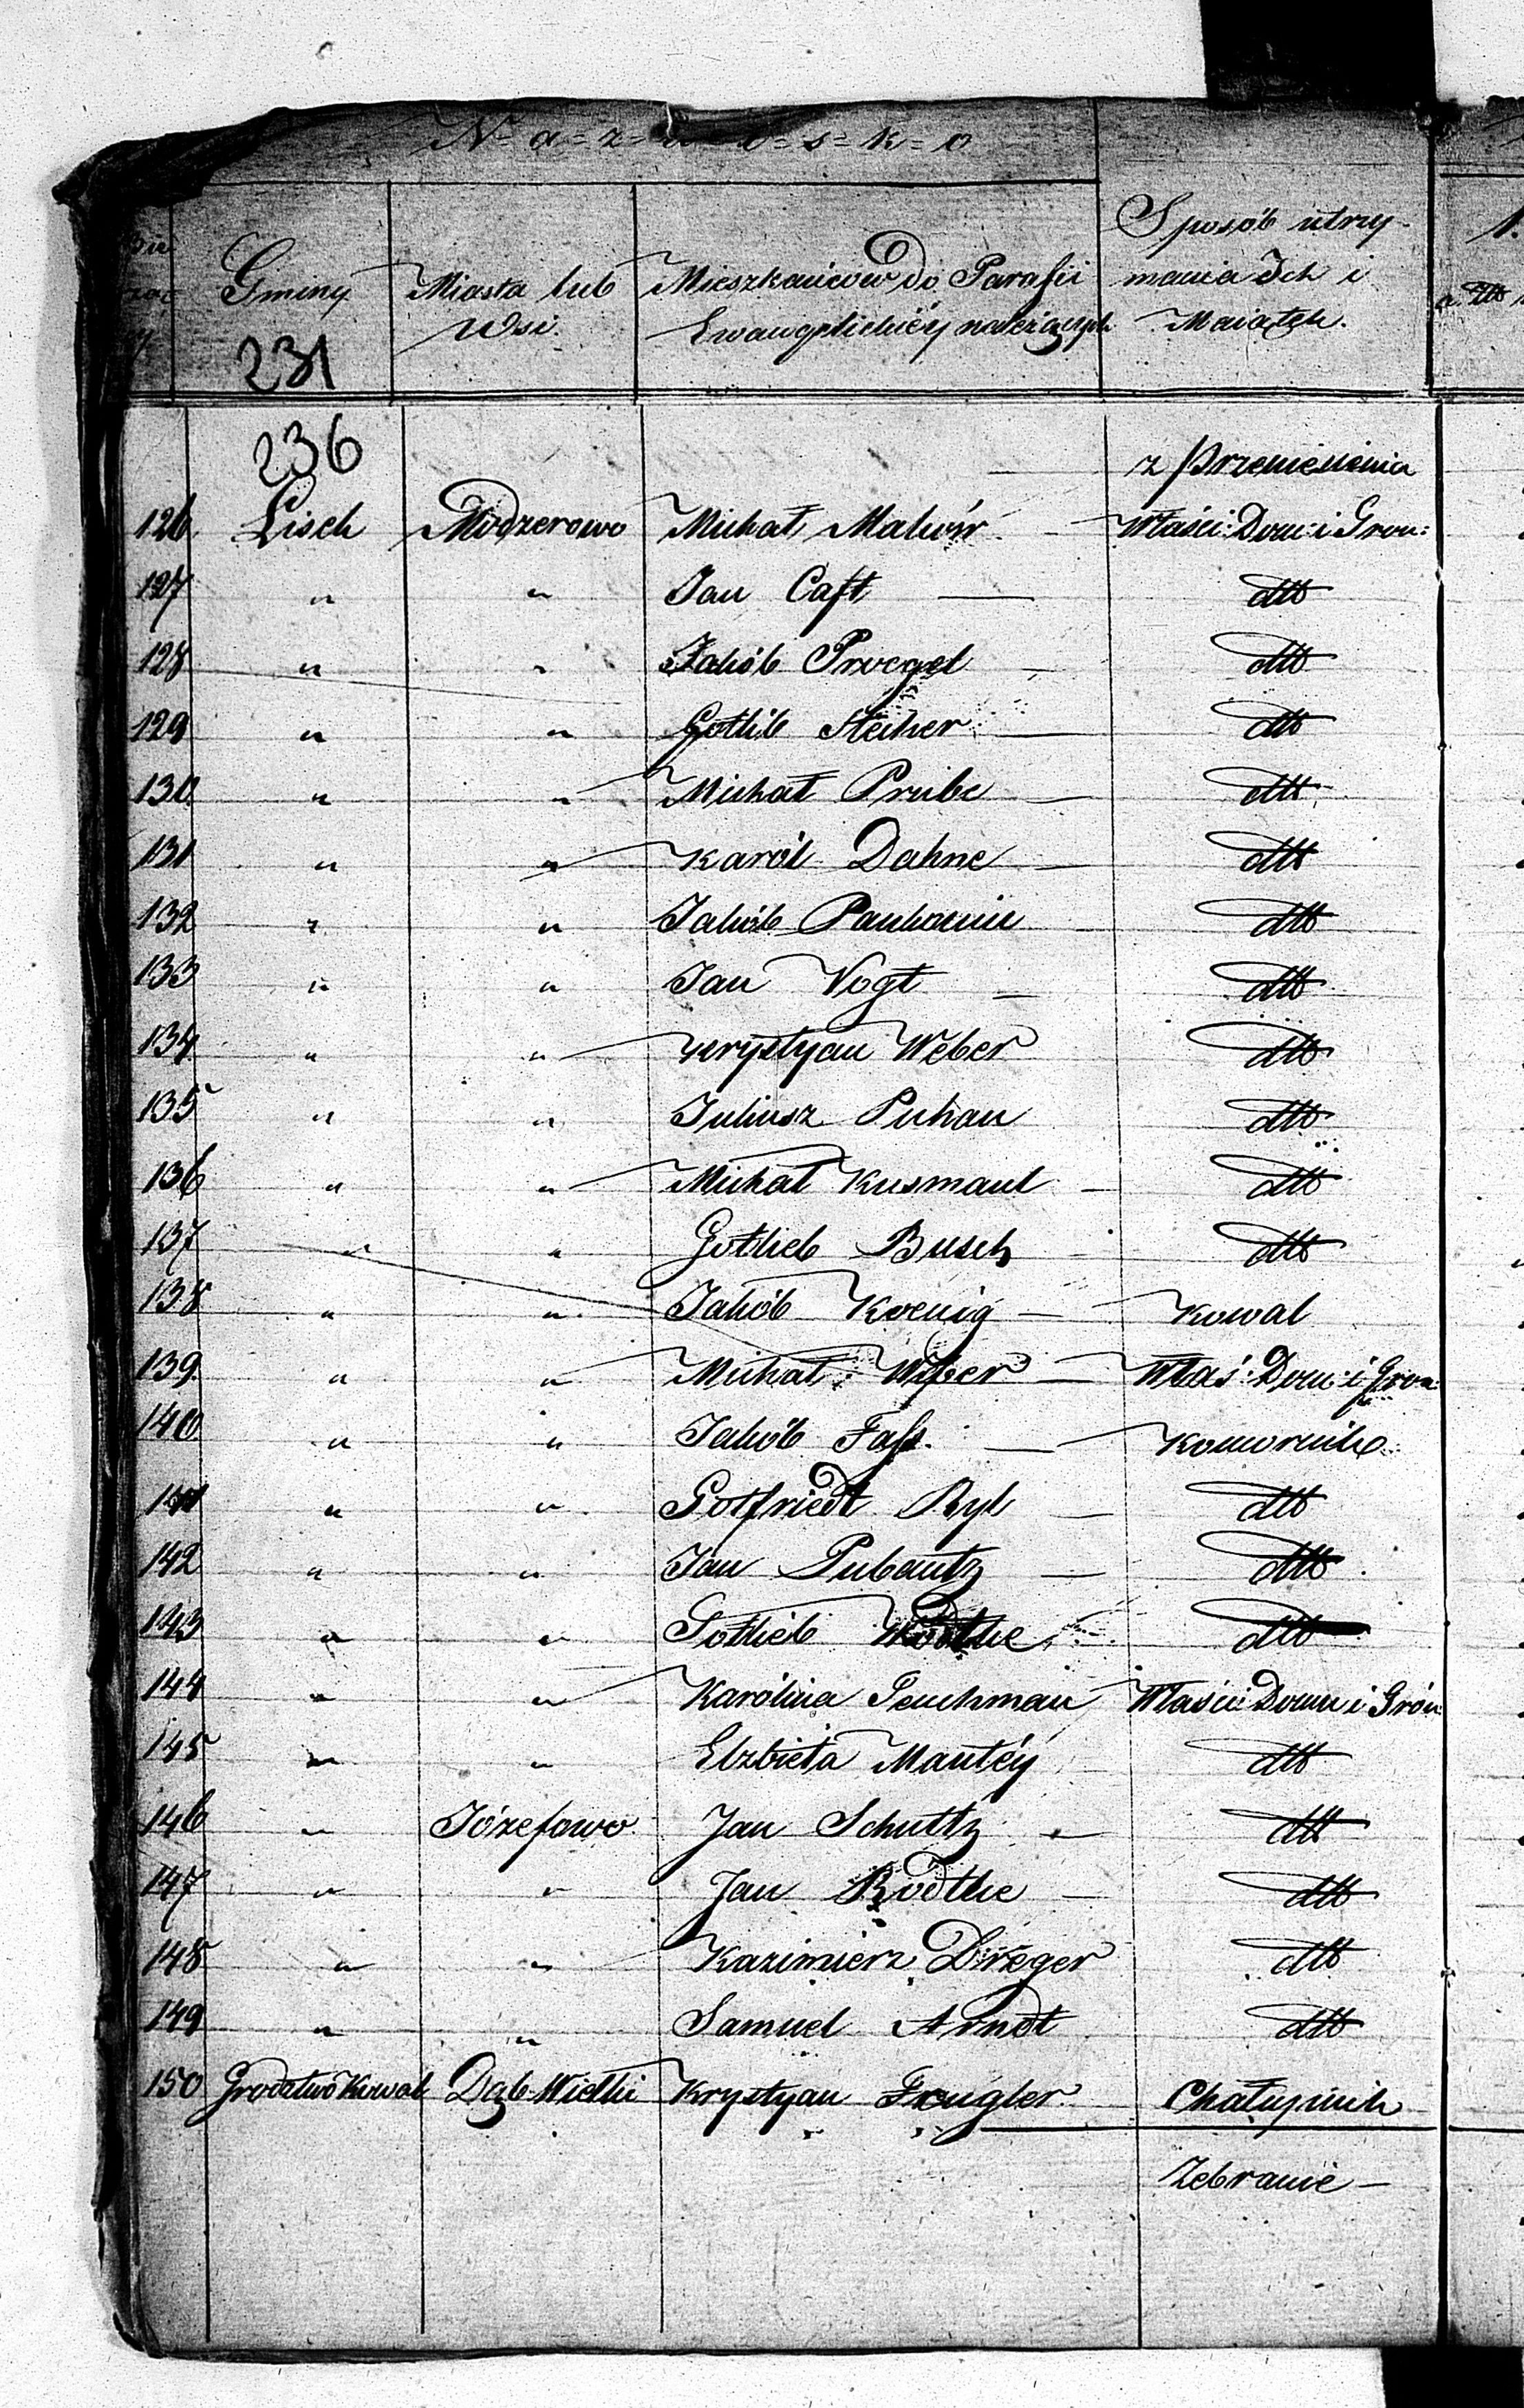 N=a=z=w=i=s=k=o
Gminy
Miasta lub
Wsi.
Mieszkańców do Parafii
Ewangelickiéy należących
Sposób utrzy-
mania Ich i
Maiątek.
1.
231
236
z Przeniesienia
126. Lisek Modzerowo Michał Właści: Dom: i Gron:
127 " " Jan Caft — dtto
128 " " Jakób Proegel dtto
129 " " Gotlib Stecker — dtto
130. " " Michał Pribe — dtto
131 " " Karól Dahne — dtto
132 " " Jakób dtto
133 " " Jan Vogt — dtto
134 " " Krystyan Weber dtto
135 " " Juliusz Puhan dtto
136 " " Michał Kusmaul — dtto
137 " " Gotlieb Busch dtto
138 " " Jakób Koenig — Kowal
139. " " Michał — Właś: Dom: i Gron:
140 " " Jakób Fass. — Komornik
141 " " Gotfriedt Ryl — dtto
142 " " Jan Pubantz — dtto
143 " " Gotlieb dtto
144 " " Karólina Właści: Domu i Grón:
145 " " Elzbieta Mantéy dtto
146 " Józefowo Jan Schultz — dtto
147 " " Jan Rodthe — dtto
148 " " Kazimierz Dreger dtto
149 " " Samuel Arndt dtto
150 Grodztwo Kowal Dąb Wielki Krystyan Frengler Chałupnik
Zebranie —